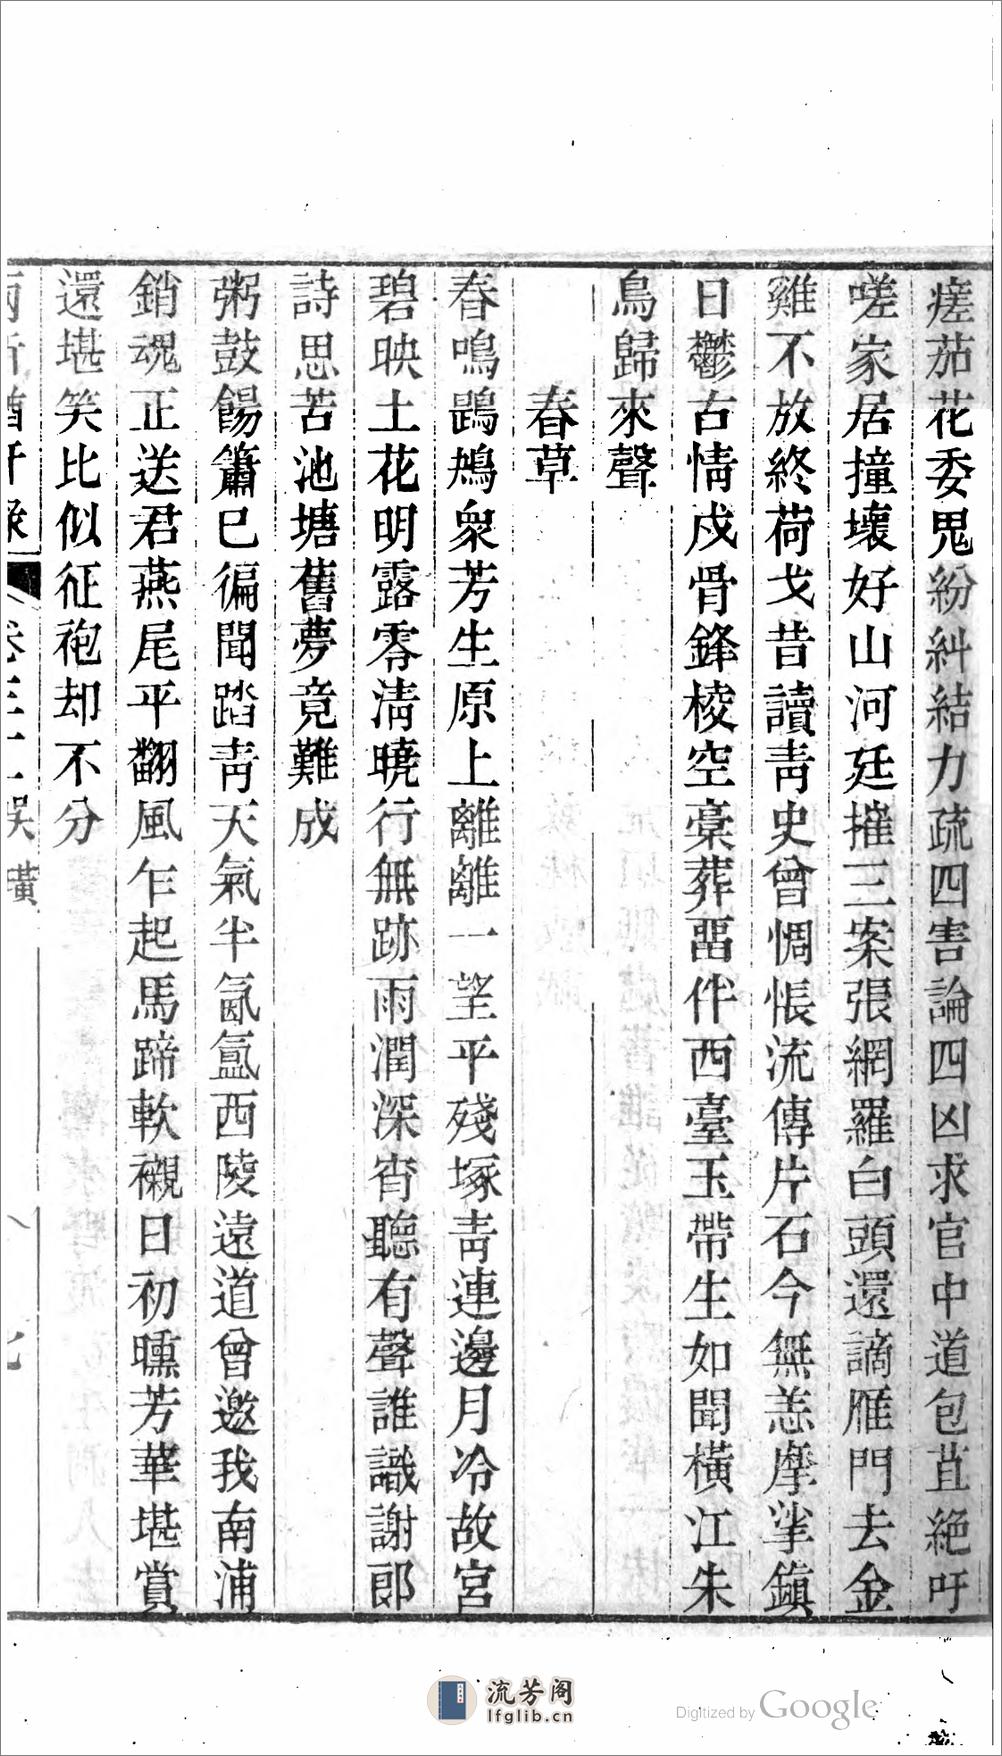 瘥茄花委鬼紛糾結力疏四害論四凶求官中道包苴絶吁
嗟家居撞壞好山河廷摧三案張網羅白頭還謫雁門去金
雞不放終荷戈昔讀靑史曾惆悵流傳片石今無恙摩挲鎭
日鬱古情戍骨鋒棱空藁葬畱伴西臺玉帶生如聞橫江朱
鳥歸來聲
春草
春鳴鶗鴂衆芳生原上離離一望平殘塚靑連邊月冷故宮
碧映土花明露零淸曉行無跡雨潤深宵聽有聲誰識謝郎
詩思苦池塘舊夢竟難成
粥鼓餳簫已徧聞踏靑天氣半氤氳西陵遠道曾邀我南浦
銷魂正送君燕尾平翻風乍起馬蹄軟襯日初曛芳華堪賞
還堪笑比似征袍却不分
卷三十二
流芳阁
lfglib.cn
Digitized by Google